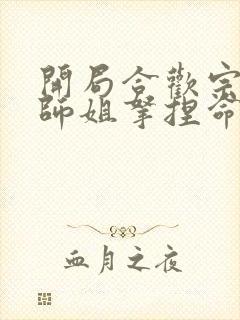 開局合歡宗
師姐拏捏命
血月之夜